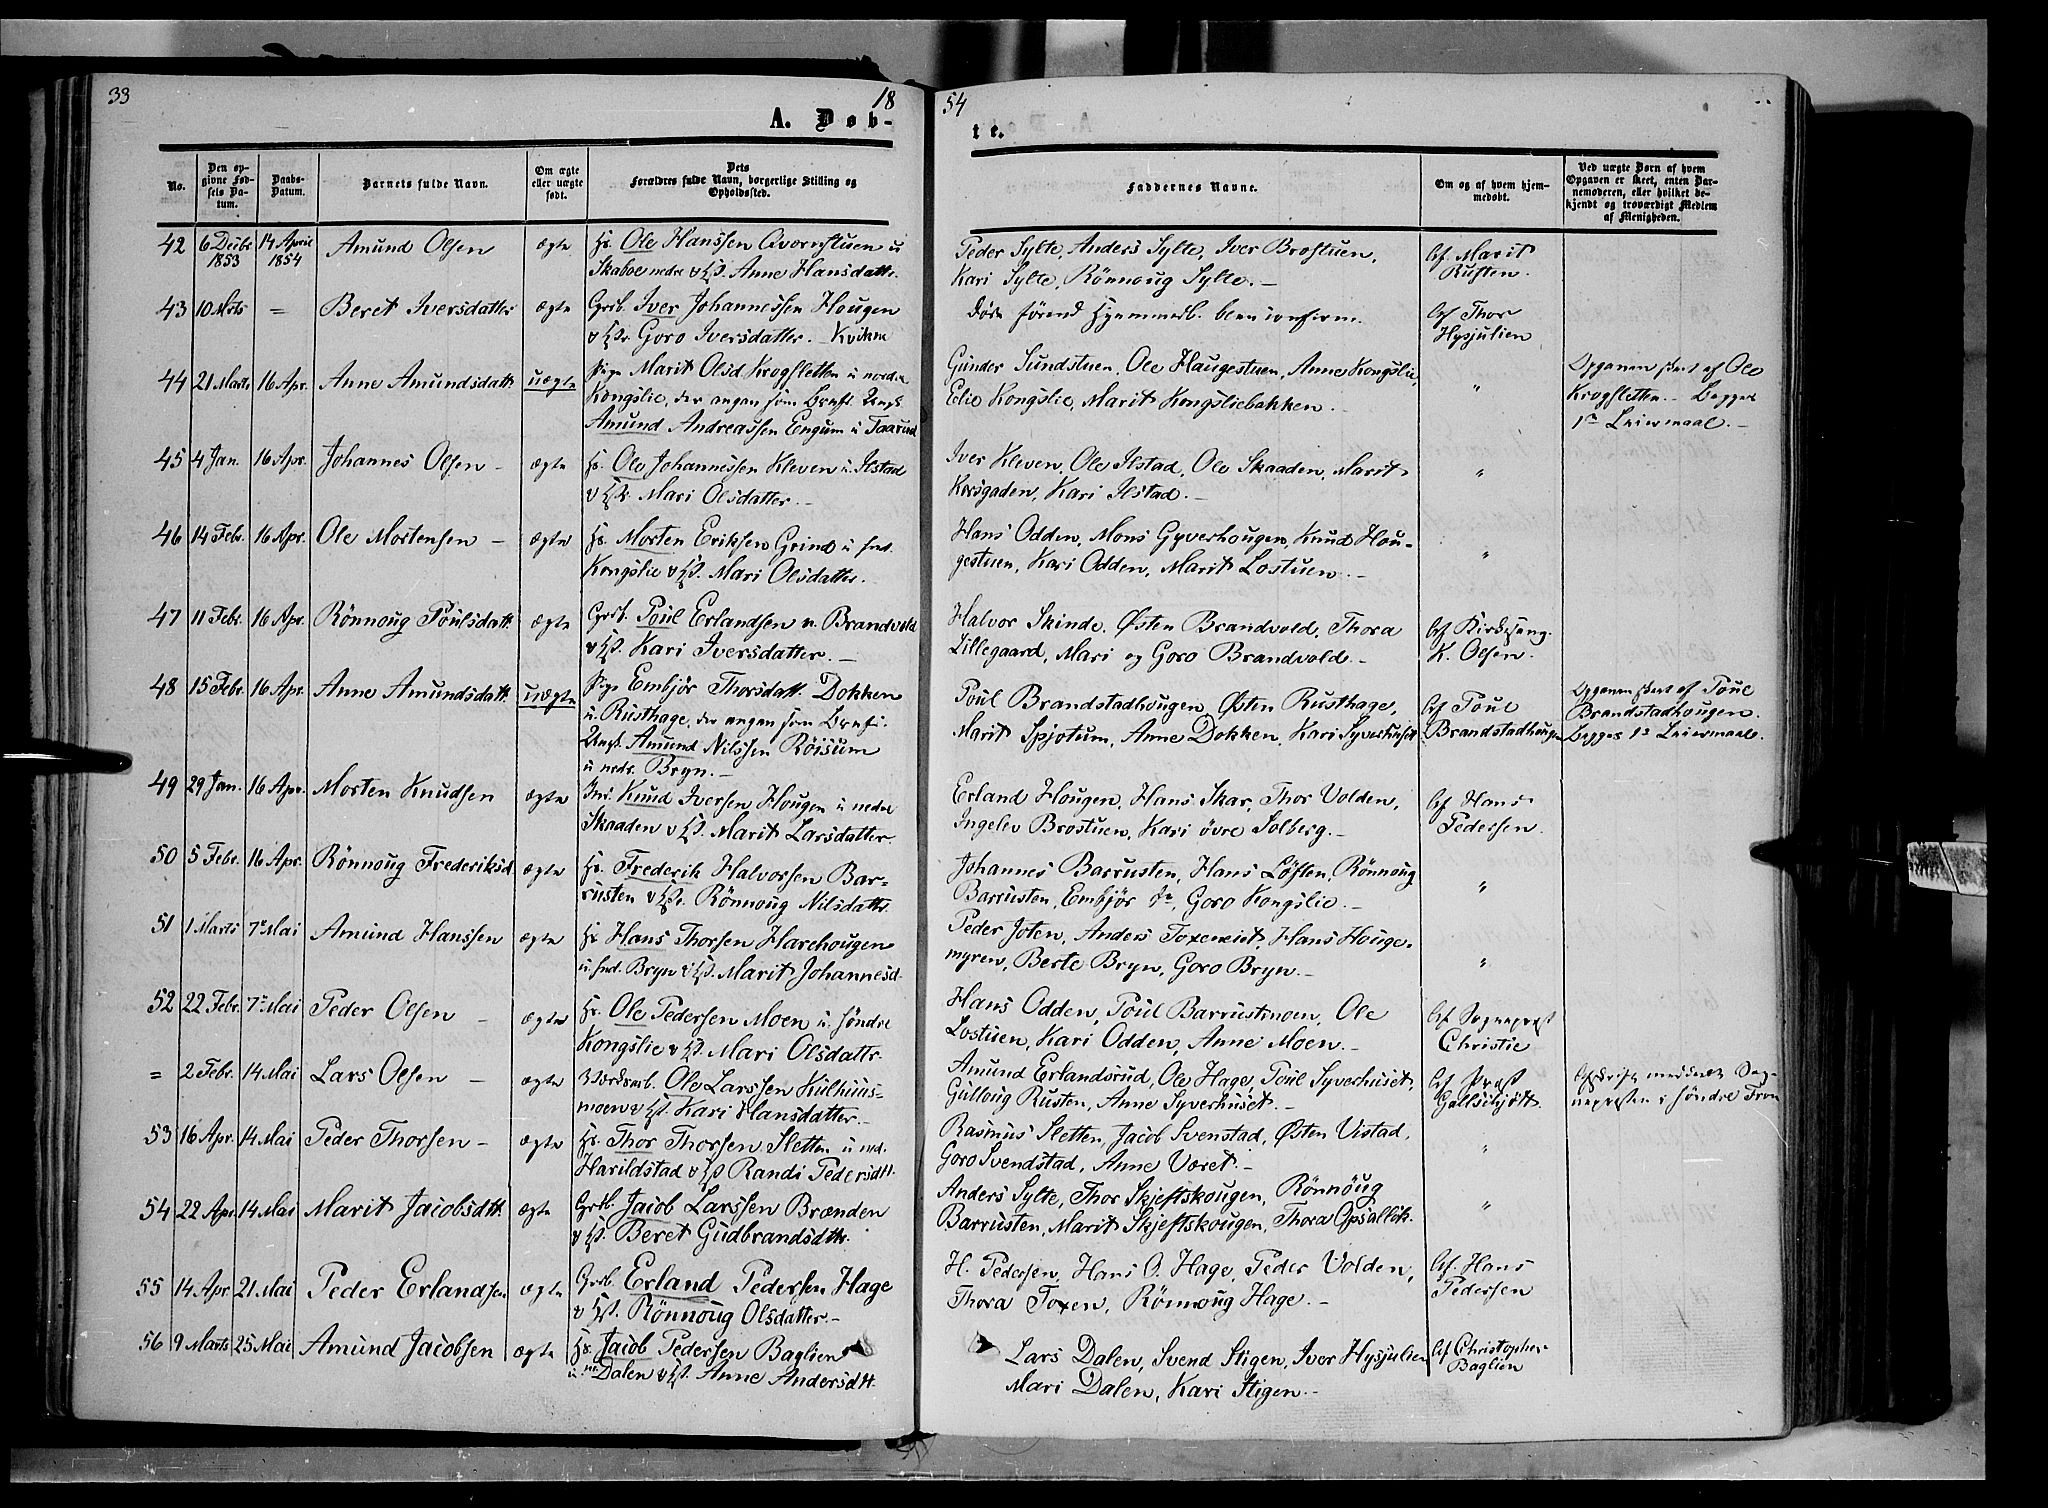 33
18
54
A. Døb-
te.
No.
Den op-
givne Fød-
sels Da-
tum.
Daabs-
Datum.
Barnets fulde Navn.
Om ægte
eller uægte
født.
Dets
Forældres fulde Navn, borgerlige Stilling og
Opholdssted.
Faddernes Navne.
Om og af hvem hjem-
medøbt.
Ved uægte Børn af hvem
Opgaven er skeet, enten Bar-
nemoderen, eller hvilket be-
kjendt og troværdigt Medlem
af Menigheden.
42 6 Decbr 14 April Amund Olsen ægte Hs. Ole Hanssen Qvornstuen u Peder Sylte, Anders Sylte, Iver Brostuen, Af Marit
1853 1854 Skaboe nedre & Anne Hansdattr. Kari Sylte, Rönnoug Sylte. — Rusten.
43 10 Mrts = Beret Iversdatter ægte Grb. Iver Johannessen Hougen Døde førend Af Thor
Goro Iversdatter. — Kvikne Hysjulien
44 21 Marts 16 Apr. Anne Amundsdatt. uægte Pige Marit Olsd. Krogsletten u nordre Gunder Sundstuen, Ole Haugestuen, Anne Kongslie, " Opgaven skeet af Ole
Kongslie, der angav som Barnf. Ungk. Eli Kongslie, Marit Kongsliebakken. — Krogsletten. — Begges
Amund Andreassen Engum u Taarud 1ste Leiermaal. —
45 4 Jan. 16 Apr. Johannes Olsen — ægte Hs. Ole Johannessen Kleven u. Ilstad Iver Kleven, Ole Ilstad, Ole Skaaden, Marit "
Mari Olsdatter. — Korsgaden, Kari Ilstad. —
46 14 Febr. 16 Apr. Ole Mortensen — ægte Hs. Morten Eriksen Grind u snd. Hans Odden, Mons Gyverhougen, Knud Hou- "
Kongslie Mari Olsdatter. gestuen, Kari Odden, Marit Lostuen. —
47 11 Febr. 16 Apr. Rönnoug Poulsdatt. ægte Grb. Poul Erlandsen n. Brandvold Halvor Skinde, Østen Brandvold, Thora Af Kirkesang.
Kari Iversdatter. — Lillegaard, Mari og Goro Brandvold. — K. Olsen.
48 15 Febr. 16 Apr. Anne Amundsdatt. uægte Pige Embjör Thorsdatt. Dokken Poul Brandstadhougen, Østen Rusthage, Af Poul Opgaven skeet af Poul
u. Rusthage, der angav som Barnf. Marit Spjotum, Anne Dokken, Kari Syverhuset Brandstadhougen Brandstadhougen.
Ungk. Amund Nilssen Röisum Begges 1s Leiermaal.
u nedr. Bryn. —
49 29 Jan. 16 Apr. Morten Knudsen ægte Ind. Knud Iversen Hougen u nedre Erland Hougen, Hans Skar, Thor Volden, Af Hans
Skaaden Marit Larsdatter. Ingelev Brostuen, Kari övre Solberg. — Pedersen.
50 5 Febr. 16 Apr. Rönnoug Frederiksd. ægte Hs. Frederik Halvorsen Bar- Johannes Barrusten, Hans Løften, Rönnoug "
rusten Rönnoug Nilsdattr. Barrusten, Embjör do, Goro Kongslie. —
51 1 Marts 7de Mai Amund Hanssen ægte Hs Hans Thorsen Harehougen Peder Joten, Anders Toxeneiet, Hans Houge- "
u. snd. Bryn Marit Johannesd. myren, Berte Bryn, Goro Bryn. —
52 22 Febr. 7de Mai Peder Olsen — ægte Hs. Ole Pedersen Moen u. söndre Hans Odden, Poul Barrustmoen, Ole Af Sogneprest
Kongslie Mari Olsdattr. Lostuen, Kari Odden, Anne Moen. — Christie
= 2 Febr. 14 Mai Lars Olsen — ægte Ole Larssen Kulhuus- Amund Erlandsrud, Ole Hage, Poul Syverhuset, Af Præst Afskrift meddeelt Sog-
moen Kari Hansdatter. — Gulloug Rusten, Anne Syverhuset. — Gallschjött. nepresten i söndre Fron
53 16 Apr. 14 Mai Peder Thorsen — ægte Hs. Thor Thorsen Sletten u ned. Rasmus Sletten, Jacob Svenstad, Østen Vistad, "
Harildstad Randi Pedersdtt. Goro Svendstad, Anne Været. —
54 22 Apr. 14 Mai Marit Jacobsdtt. ægte Grb. Jacob Larssen Brænden Anders Sylte, Thor Skjeftskougen, Rönnoug "
Beret Gudbrandsdttr. Barrusten, Marit Skjeftskougen, Thora Opsallien.
55 14 Apr. 21 Mai Peder Erlandsen ægte Grb. Erland Pedersen Hage H. Pedersen, Hans O. Hage, Peder Volden, Af Hans
Rönnoug Olsdatter. — Thora Toxen, Rönnoug Hage. — Pedersen
56 9 Marts 25 Mai Amund Jacobsen ægte Hs. Jacob Pedersen Baglien Lars Dalen, Svend Stigen, Iver Hysjulien Af Christopher
u. nr. Dalen Anne Andersdtt. Mari Dalen, Kari Stigen. — Baglien